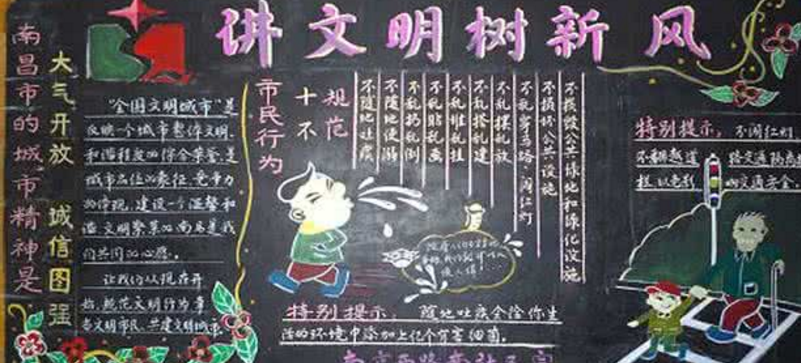 讲文明树新风
南昌市的城市精神是
大气开放 诚信图强
"全国文明城市"是
反映一个城市整体文明、
和谐程度的综合荣誉,是
城市品位的象征、竞争力
的体现,建设一个温馨和
谐文明繁荣的南昌是我
们共同的心愿。
让我们从现在开
始,规范文明行为,争
当文明市民,共建文明城市
市民行为
十不
规范
不随地吐痰
不随地便溺
不乱扔乱倒
不乱贴乱画
不乱堆乱挂
不乱搭乱建
不乱摆乱放
不乱穿马路、闯红灯
不损坏公共设施
不损毁公共绿地和绿化设施
特别提示:随地吐痰会给你生
活的环境中添加上亿个有害细菌。
特别提示:不闯红灯
不翻越道路交通隔离